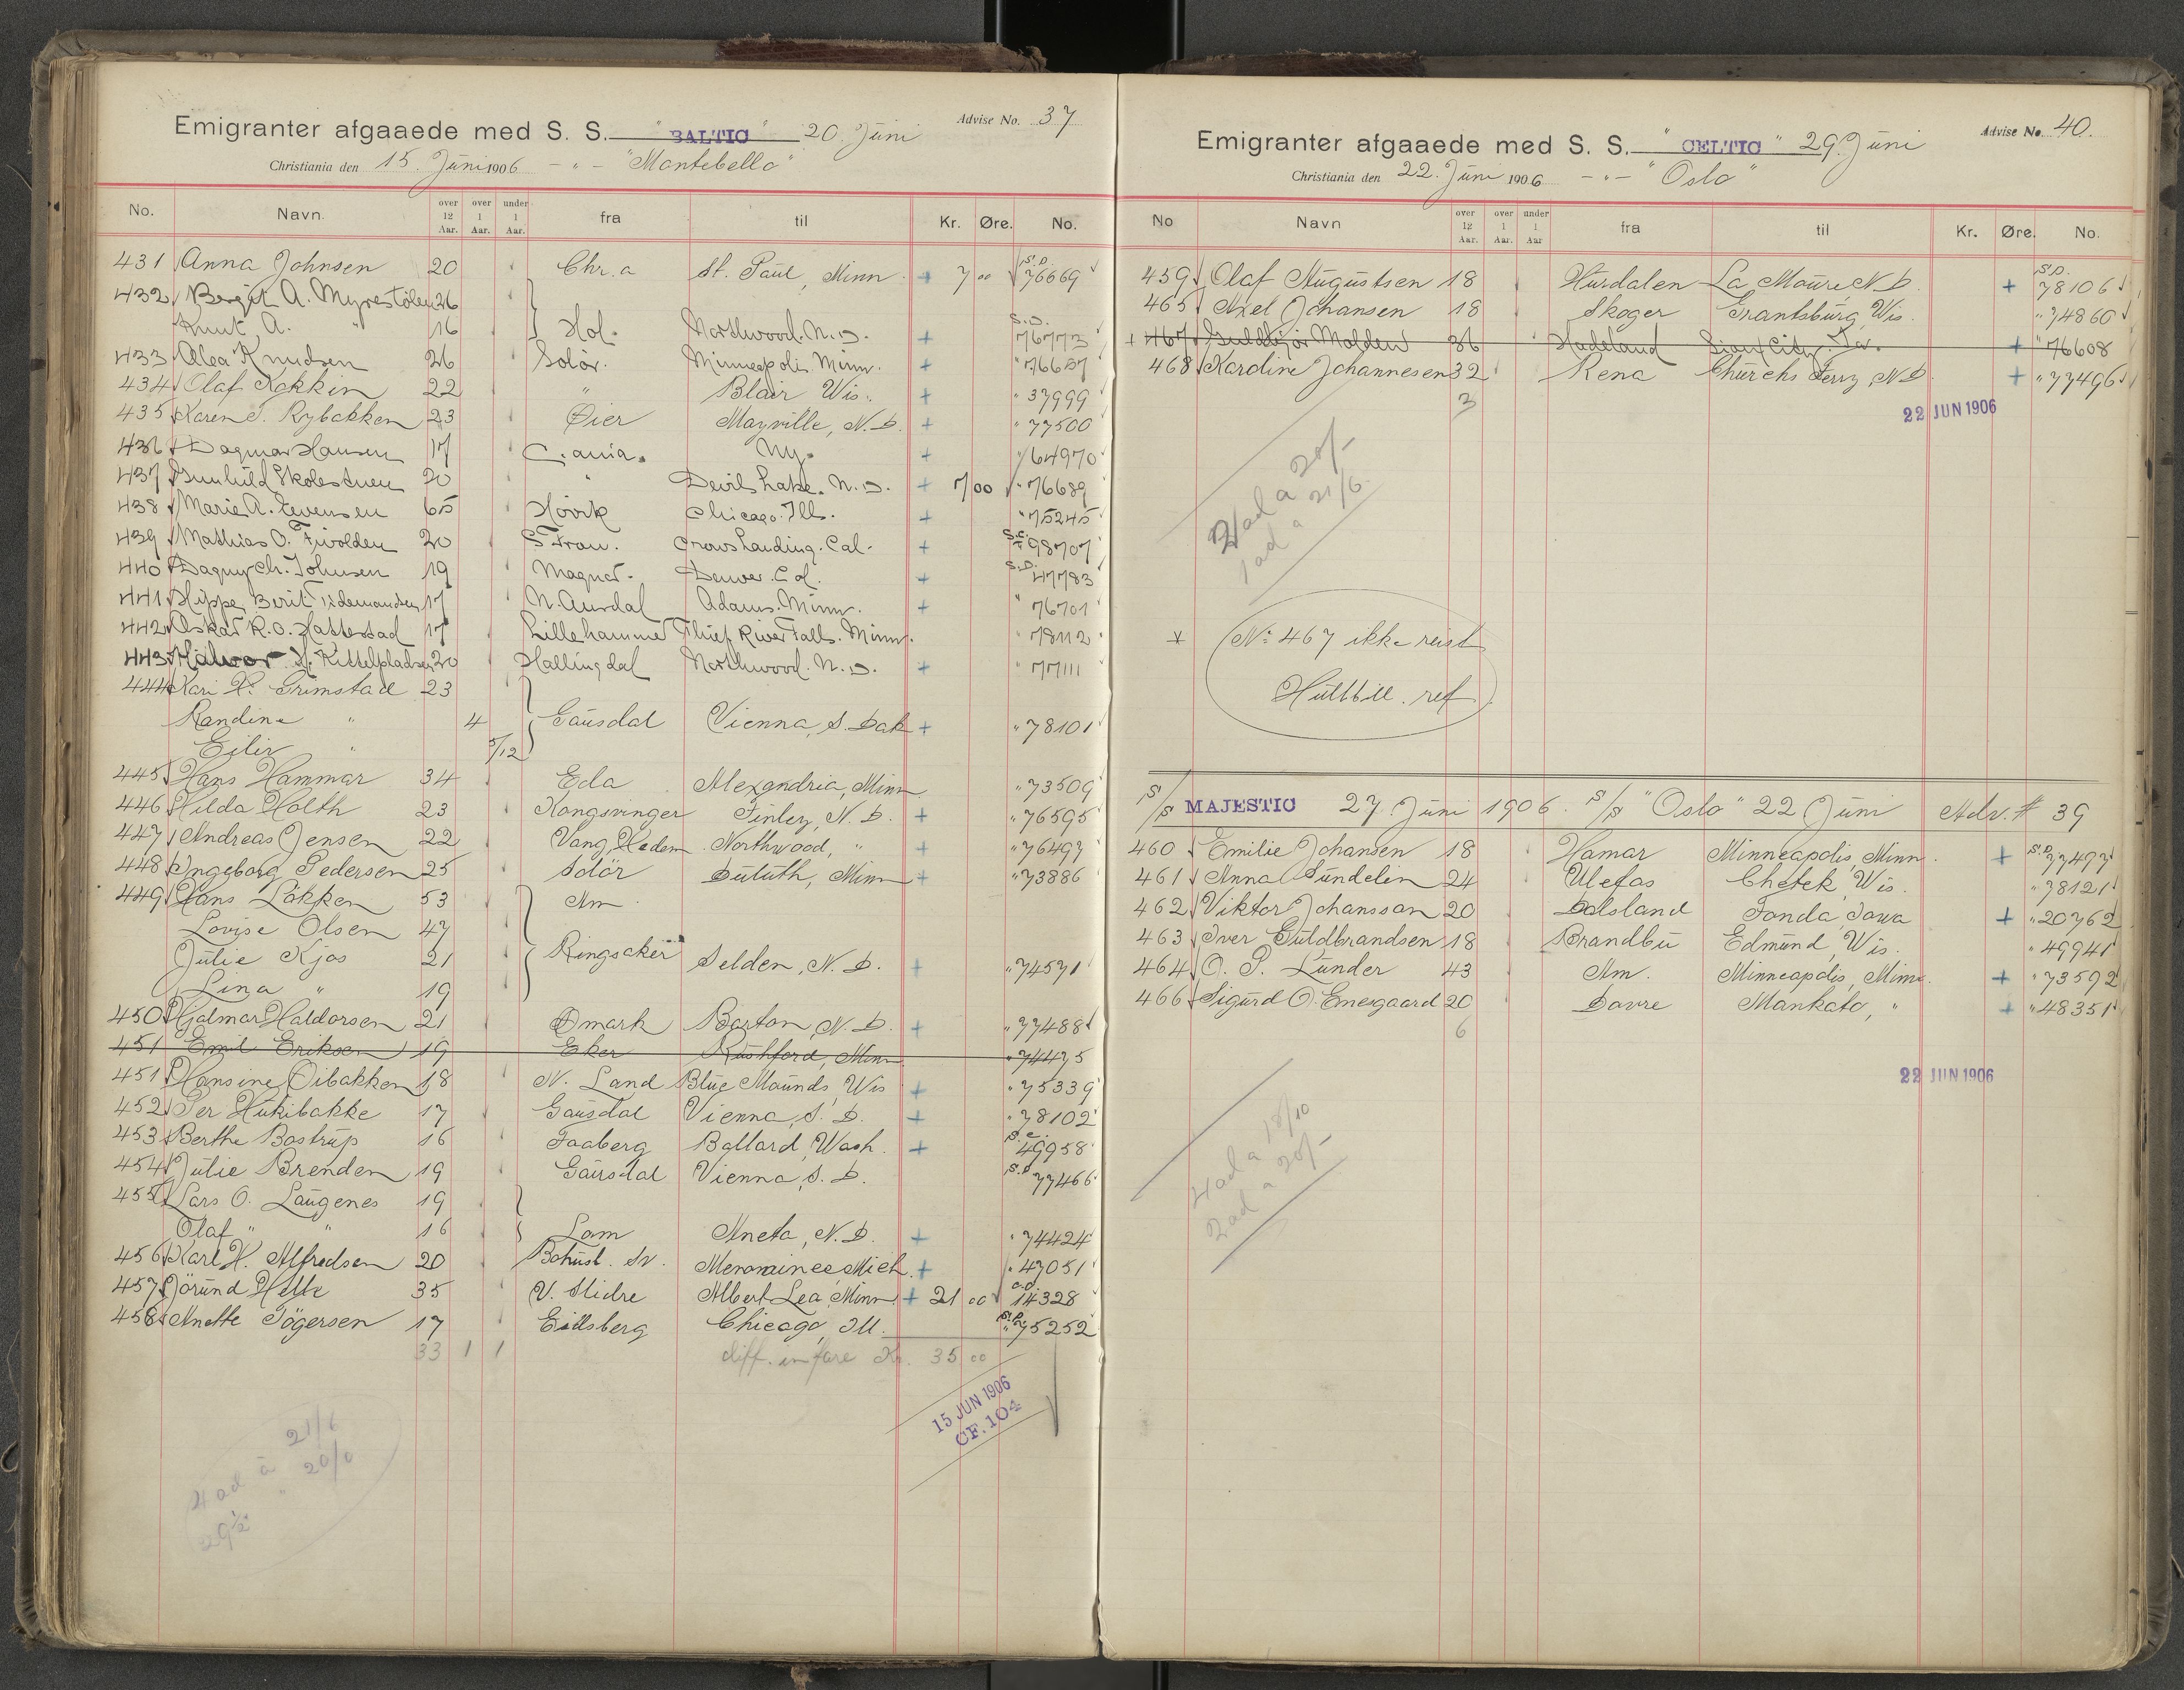 Emigranter afgaaede med S. S. "BALTIC" 20. Juni Advise No. 37
Christiania den 15. Juni 1906 - " - "Montebello"
No. Navn. over 12 Aar. over 1 Aar. under 1 Aar. fra til Kr. Øre. No.
431 Anna Johnsen 20 Chr.a St. Paul, Minn. + 7 00 S.D. 76669
432 Bergit A. Myrestölen 26
Knut A. " 16 Hol. Northwood. N. D. + S.D. 76773
433 Alea Knudsen 26 Solör. Minneapolis Minn. + " 76657
434 Olaf Kokkin 22 " Blair Wis. + " 37999
435 Karen J. Rybakken 23 Öier Mayville, N. D. + " 77500
436 Dagmar Hansen 17 C.ania. Ny. + " 64970
437 Gunhild Skolestuen 20 " Devils Lake. N. D. + 7/00 " 76689
438 Marie A. Evensen 65 Hövik Chicago. Ills. + " 75245
439 Mathias O. Fivolden 20 S. Fron. Crows Landing. Cal. + S.C. 98707
440 Dagny Ch. Johnsen 19 Magnor. Denver. Col. + S.D. 47783
441 Hippe, Berit Tidemandsen 17 N. Aurdal Adams. Minn. + " 76701
442 Oskar R. O. Hattestad 17 Lillehammer Thief River Falls. Minn. " 78112
443 Halvor H. Kittelpladsen 20 Hallingdal Northwood. N. D. + " 77111
444 Kari H. Grimstad 23
Randine " 4 Gausdal Vienna, S. Dak + " 78101
Eilir " 5/12
445 Hans Hammar 34 Eda Alexandria, Minn " 73509
446 Hilda Holth 23 Kongsvinger Finley, N. D. + " 76595
447 Andreas Jensen 22 Vang, Hedem. Northwood, " + " 76497
448 Ingeborg Pedersen 25 Solör Duluth, Minn + " 73886
449 Hans Läkken 53 Am.
Lovise Olsen 47
Julie Kjos 21 Ringsaker Selden, N. D. + " 74571
Lina " 19
450 Hjalmar Haldorsen 21 Ömark Barton, N. D. + " 77488
451 Emil Eriksen 19 Eker Rushford, Minn " 74475
451 Hansine Öibakken 18 N. Land Blue Mounds, Wis + " 75339
452 Per Hukibakke 17 Gausdal Vienna, S. D. + " 78102
453 Berthe Bostrup 16 Faaberg Ballard, Wash. + S.C. 49958
454 Julie Brenden 19 Gausdal Vienna, S. D. S.D. 77466
455 Lars O. Laugenes 19
Olaf " " 16 Lom Aneta, N. D. + " 74424
456 Karl H. Alfredsen 20 Bohusl. Sv. Menominee, Mich. + " 47051
457 Jörund Helle 35 V. Slidre Albert Lea, Minn. + 21 00 C.D. 14328
458 Anette Tögersen 17 Eidsberg Chicago, Ill. S.D. " 75252
33 1 1 diff. in fare Kr. 35 00
15 JUN 1906
CF. 104
4 ad à 21/6
29½ " 20/0
Emigranter afgaaede med S. S. "CELTIC" 29. Juni Advise No. 40.
Christiania den 22. Juni 1906 - " - "Oslo"
No Navn over 12 Aar. over 1 Aar. under 1 Aar fra til Kr. Øre. No.
459 Olaf Augustsen 18 Hurdalen La Moure, N. D. + S.D. 78106
465 Axel Johansen 18 Skoger Grantsburg, Wis. " 74860
+ 467 Guldbjör Molden 36 Hadeland Sioux City. Ia. + " 76608
468 Karoline Johannesen 32 Rena Churchs Ferry, N. D. + " 77496
3
22 JUN 1906
2 ad a 20/-
1 ad a 21/6
x No 467 ikke reist
Hullbill. ref
S/S MAJESTIC 27. Juni 1906. S/S "Oslo" 22 Juni Adv. # 39
460 Emilie Johansen 18 Hamar Minneapolis, Minn. + S.D. 77497
461 Anna Sundelin 24 Ulefos Chetek, Wis. " 78121
462 Viktor Johansson 20 Dalsland Fonda, Iowa + " 20762
463 Iver Guldbrandsen 18 Brandbu Edmund, Wis. " 49941
464 O. P. Lunder 43 Am. Minneapolis, Minn. + " 73592
466 Sigurd O. Enesgaard 20 Dovre Mankato, " + " 48351
6
22 JUN 1906
4 ad a 18/10
2 ad a 20/-